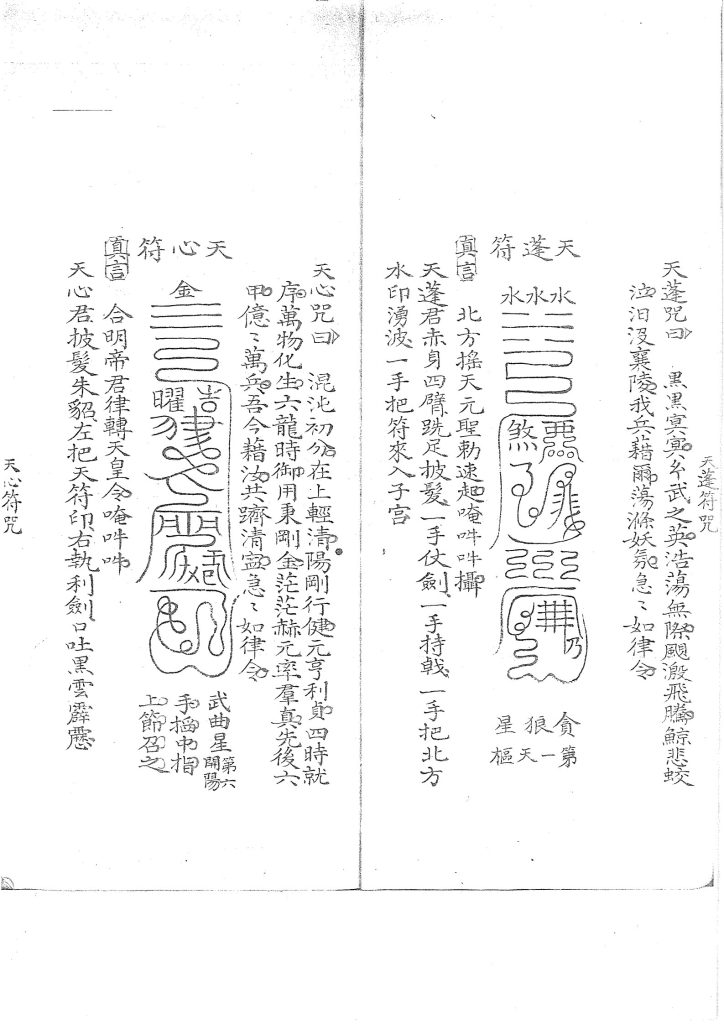 天蓬符咒
天蓬咒曰　黑黑冥冥玄武之英浩蕩無際颶激飛騰鯨悲蛟
泣汨沒襄陵我兵藉爾蕩滌妖氛急〻如律令
天蓬符
水水水
煞
乃
貪狼星
第一天樞
真言　北方搖天元聖勅速起唵吽吽攝
天蓬君赤身四臂跣足披髮一手仗劍一手持戟一手把北方
水印湧波一手把符來入子宮
天心咒曰　混沌初分在上輕清陽剛行健元亨利貞四時就
序萬物化生六龍時御用秉剛金茫茫赫元率羣真先後六
甲億〻萬兵吾今藉汝共躋清寍急〻如律令
天心符
金
吉曜
武曲星第六開陽
手搯中指
上節召之
真言　合明帝君律轉天皇令唵吽吽
天心君披髮朱貂左把天符印右執利劍口吐黑雲霹靂
天心符咒